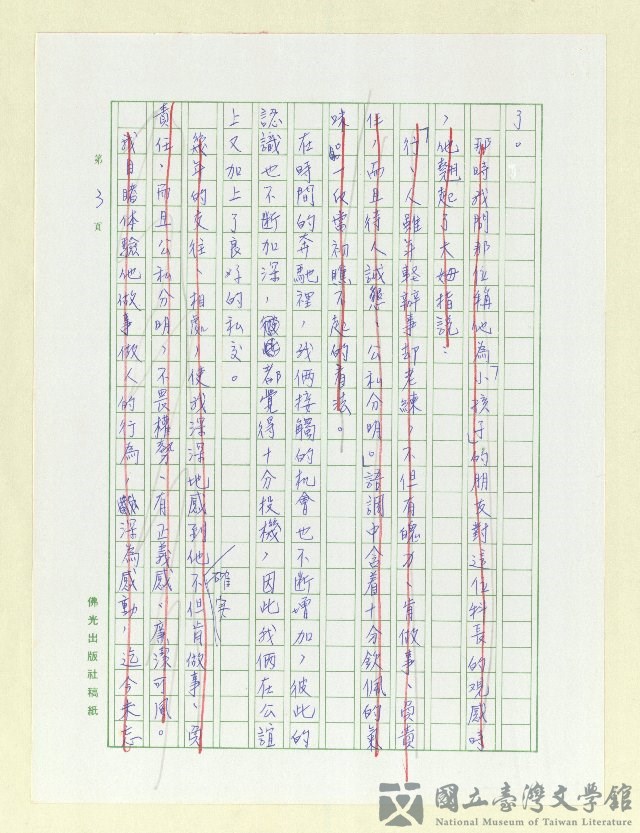 了。
那時我問那位稱他為「小孩子」的朋友對這位科長的观感時
，他翹起了大姆指說：
「行、人雖年輕辦事却老練，不但有魄力、肯做事、負責
任，而且待人誠懇、公私分明。」語調中含着十分欽佩的氣
味。一改當初瞧不起的看法。
在時間的奔馳裡，我俩接觸的机會也不断增加，彼此的
認識也不断加深，都覺得十分投機，因此我俩在公誼
上又加上了良好的私交。
幾年的交往、相處，使我深深地感到他確实不但肯做事、負
責任、而且公私分明，不畏權势、有正義感。廉潔可風。
我目睹体驗他做事做人的行為，深為感動，迄今未忘
第3頁
佛光出版社稿紙
國立臺灣文學館
National Museum of Taiwan Literature